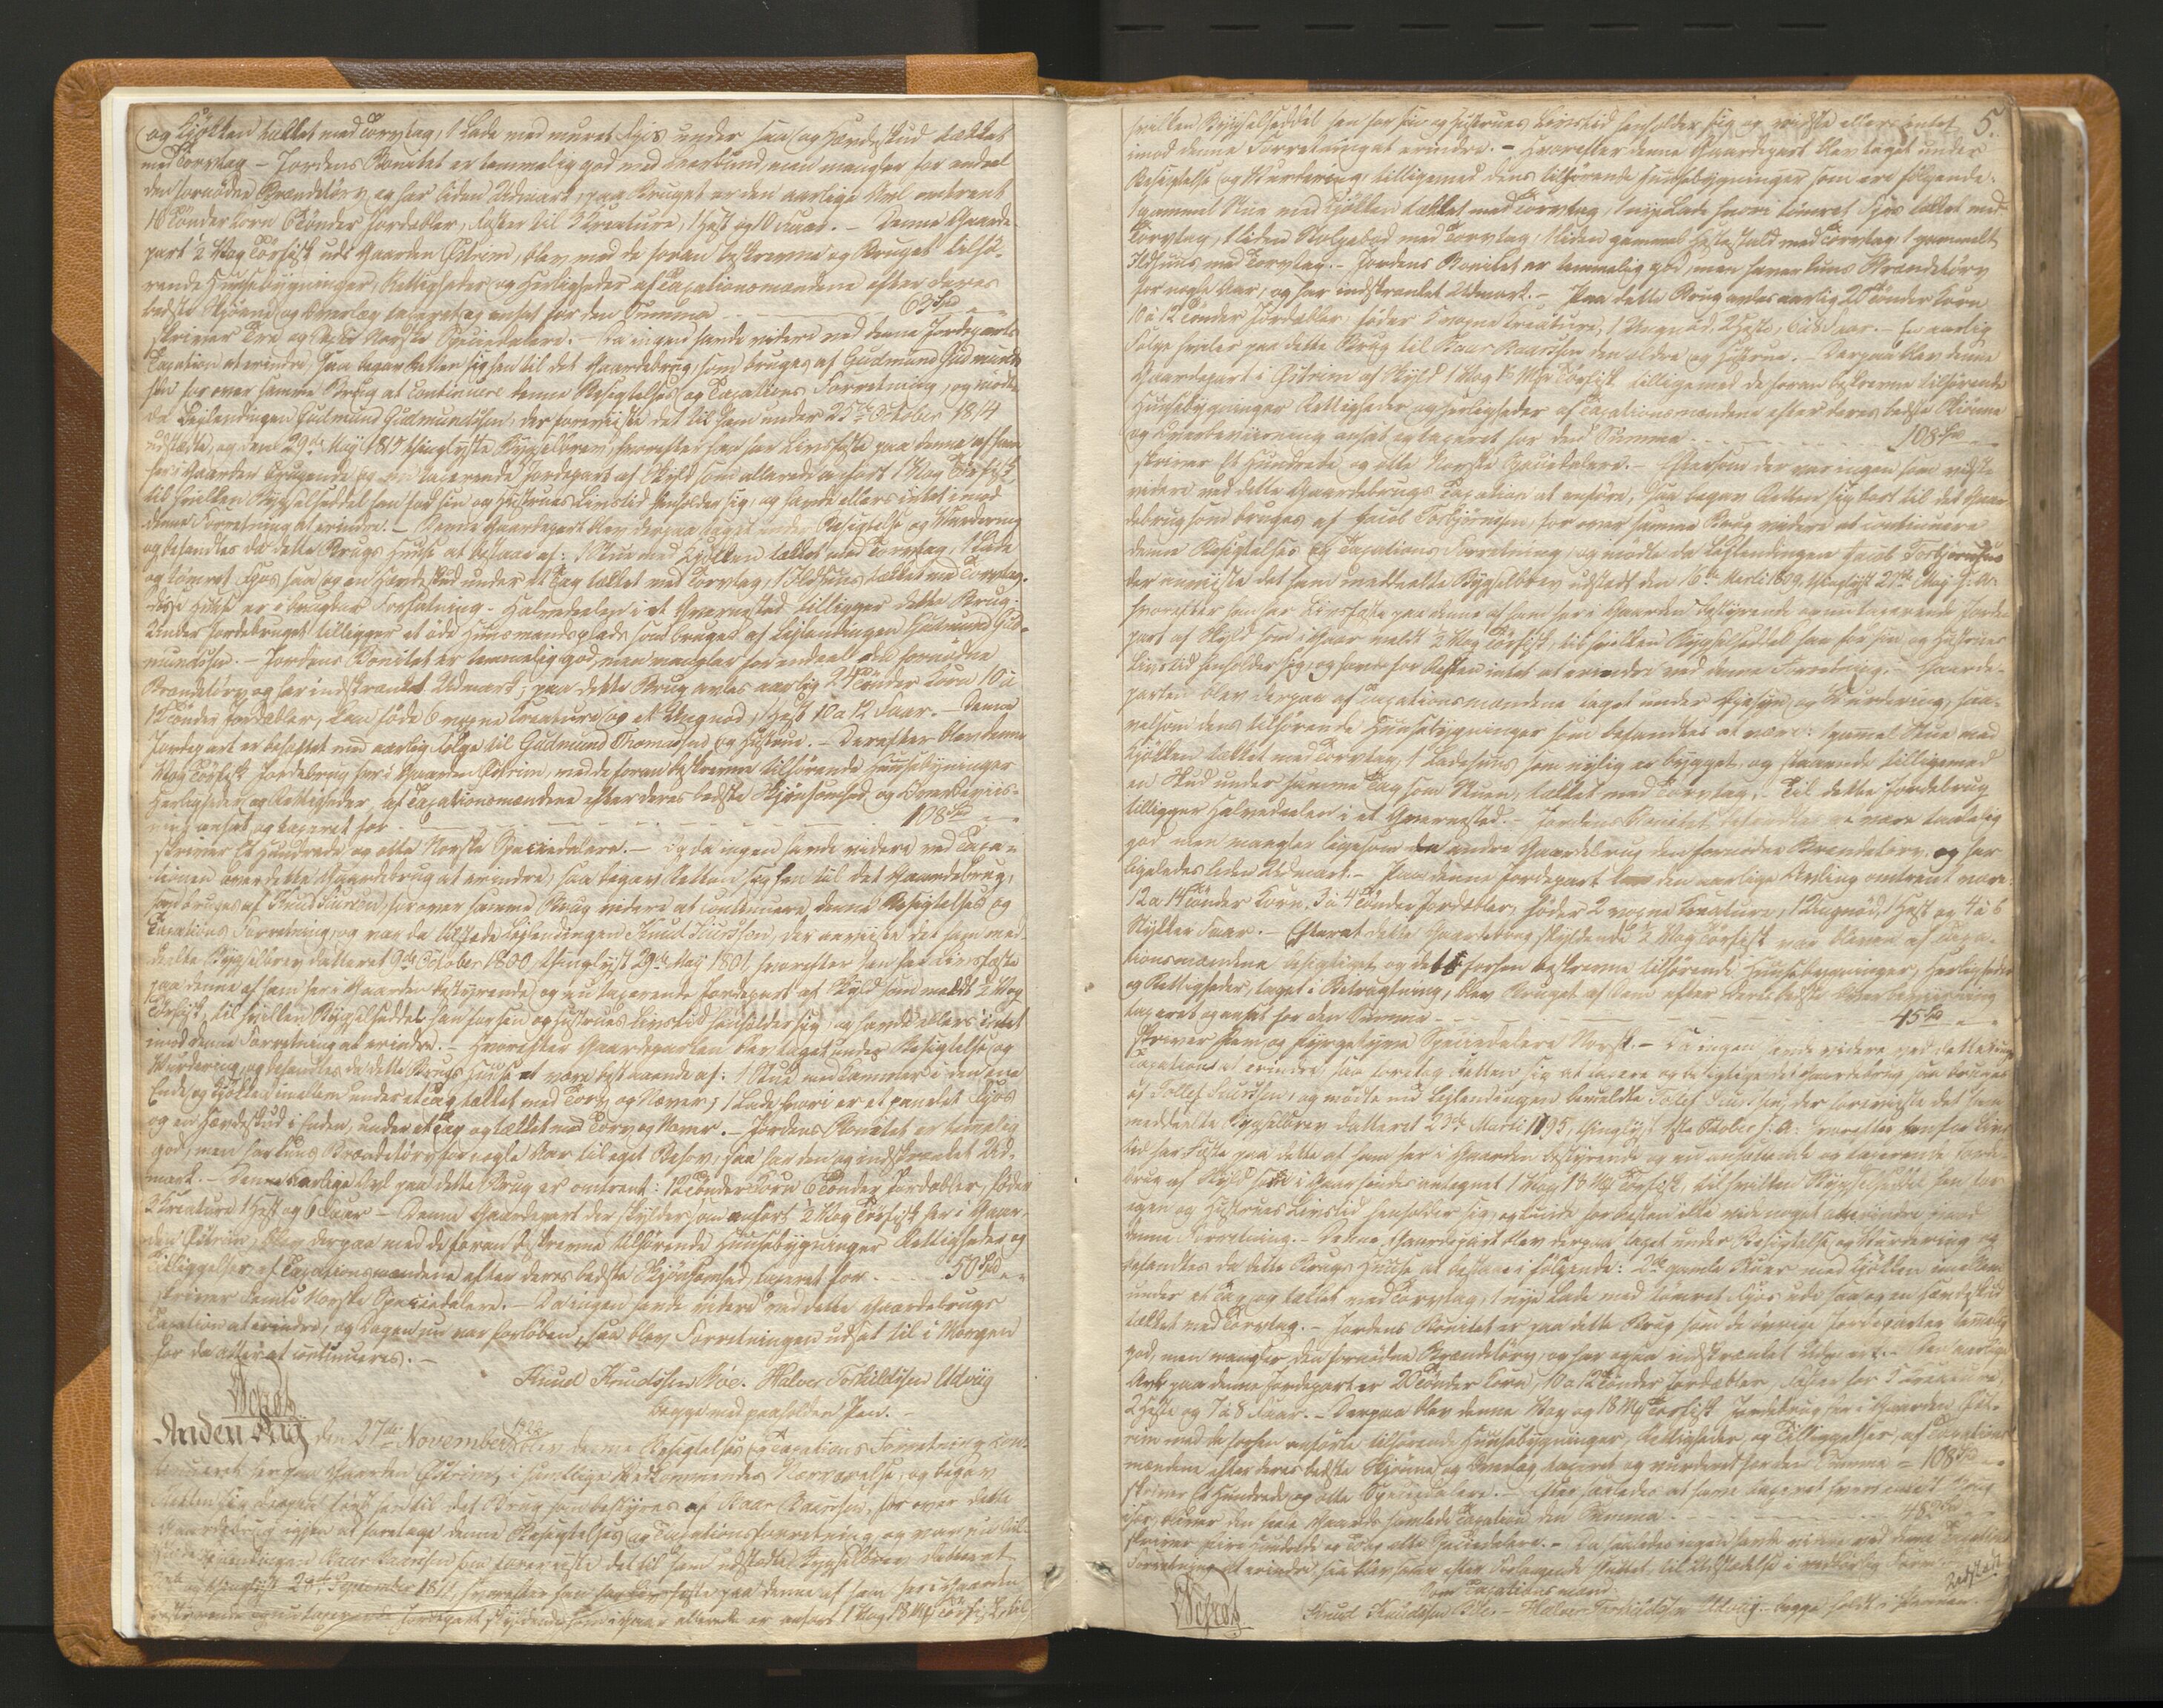 og Kjøkken tækket med Torvtag, 1 Lade med muret Fjøs under samt og Hæstestud tækket
med Torvtag – Jordens Bonitet er temmelig god med men mangler for endeel
den fornødne Brændetørv og har liden Udmark, paa Bruget er den aarlige Avl omtrent
16 Tønder Korn 6 Tønder Jordæbler, foster til 3 Kreature, 1 Hest og 10 Faar. – Denne Gaarde-
part 2 Vog Tørfisk udi Gaarden Østrim, blev med de foran beskrevne og Bruget tilhø-
rende Huusebygninger, Rettigheder og Herligheder af Taxationsmændene efter deres
bedste Skjønnd og Overlæg taxeret og ansat for den Summa
skriver Tre og Norske Speciedalere. – Da ingen havde videre ved denne Jordeparts
Taxation at erindre, saa begav Retten sig hen til det Gaardebrug, som bruges af Gudmund Gudmunds
søn for over samme Brug at continuere denne Besigtelses og Taxations Forretning, og mødte
da Leilendingen Gudmund Gudmundsøn, der foreviiste det til ham under 25de October 1814
udstædte, og den 29de May 1817 thinglyste Bygselbrev, hvorefter han har Livsfæste paa denne af ham
her i Gaarden brugende og nu taxerende Jordepart af Skyld som allerede anført 1 Vog Tørfisk,
til hvilken Bygselseddel han for sin og Hustrues Livstid henholder sig, og havde ellers intet imod
denne Forretning at erindre. – Denne Gaardepart blev derpaa taget under Besigtelse og Vurdering
og befandtes da dette Brugs Huuse at bestaae af: 1 Stue med Kjøkken tækket med Torvtag, 1 Lade
og tømret Fjøs samt og en Hæstestud under et Tag tækket med Torvtag, 1 Ildhuus tækket med Torvtag.
disse Huuse er i brugbar Forfatning. Halvedeelen i et Qvernested tilligger dette Brug.
Under Jordebruget tilligger et øde Huusmandsplads som bruges af Leilendingen Gudmund Gud-
mundsøn. – Jordens Bonitet er temmelig god, men mangler for endeel den fornødne
Brændetørv og har indskrænket Udmark; paa dette Brug avles aarlig 24 Tønder Korn 10 a
12 Tønder Jordæbler, kan føde 6 voxne Kreature og et Ungnød, 1 Hest 10 a 12 Faar. – Denne
Jordepart er behæftet med aarlig Følge til Gudmund Thomasøn og Hustrue. – Derefter blev denne
Vog Tørfisk Jordebrug her i Gaarden Østrim, med de foran beskrevne tilhørende Huusebygninger
Herligheder og Rettigheder, af Taxationsmændene efter deres bedste Skjønsomhed og Overbeviis-
ning ansat og taxeret for 108 Spd
skriver Et Hundrede og otte Norske Speciedalere. – Og da ingen havde videre ved Taxa-
tionen over dette Gaardebrug at erindre, saa begav Retten sig hen til det Gaardebrug,
som bruges af Knud for over samme Brug videre at continuere denne Besigtelses og
Taxations Forretning, og var da tilstæde Leilendingen Knud der anviiste det ham med-
deelte Bygselbrev datteret 9de October 1800, thinglyst 29de May 1801, hvorefter han har Livsfæste
paa denne af ham her i Gaarden bestyrende og nu taxerende Jordepart af Skyld som meldt 2 Vog
Tørfisk, til hvilken Bygselseddel han for sin og Hustrues Livstid henholder sig, og havde ellers intet
imod denne Forretning at erindre. – Hvorefter Gaardeparten blev taget under Besigtelse og
Vurdering, og befandtes da dette Brugs Huuse at være bestaaende af: 1 Stue med Kammer i den ene
Ende og Kjøkken imellem under et Tag tækket med Torv og Næver; 1 Lade hvori er et panelet Fjøs
og en Hæstestud i Enden, under et Tag og tækket med Torv og Næver. – Jordens Bonitet er temmelig
god, men har kuns Brændetørv for nogle Aar til eget Behov, saa har den og indskrænket Ud-
mark. – Denne aarlige Avl paa dette Brug er omtrent: 12 Tønder Korn 6 Tønder Jordæbler, føder
3 Kreature 1 Hest og 6 Faar – Denne Gaardepart der skylder som anført 2 Vog Tørfisk her i Gaar-
den Østrim, blev derpaa med de foran beskrevne tilhørende Huusebygninger Rettigheder og
Tilliggelser, af Taxationsmændene efter deres bedste Skjønsomhed taxeret for 50 Spd
skriver Femti Norske Speciedalere. – Da ingen havde videre ved dette Gaardebrugs
Taxation at erindre, og Dagen nu var forløben, saa blev Forretningen udsat til i Morgen
for da atter at continueres. –
Knud Knudssen Halvor Torkildssen Udviig
begge med paaholden Pen. –
Anden Dag den 27de November 1822 blev denne Besigtelses og Taxations Forretning con-
tinueret her paa Gaarden Østrim, i samtlige Vedkommendes Nærværelse, og begav
Retten sig derpaa først hen til det Brug som bestyres af Baar Baarsøn, for over dette
Gaardebrug igjen at foretage denne Besigtelses og Taxationsforretning og var nu til-
stæde Leilendingen Baar Baarsøn som foreviiste det til ham udstædte Bygselbrev datteret
og thinglyst 28de September 1811, hvorefter han har Livsfæste paa denne af ham her i Gaarden
bestyrende og nu taxerende Jordepart, skyldende som i Gaar allerede er anført 1 Vog 18 Mrk Tørfisk, til
5.
hvilken Bygselseddel han for sin og Hustrues Livstid henholder sig og vidste ellers intet
imod denne Forretning at erindre. – Hvorefter denne Gaardepart blev taget under
Besigtelse og Vurdering, tilligemed dens tilhørende Huusebygninger som ere følgende:
1 gammel Stue med Kjøkken tækket med Torvtag, 1 nye Lade hvori tømret Fjøs tækket med
Torvtag, 1 liden Stolpebod med Torvtag, 1 liden gammel Hestestald med Torvtag, 1 gammelt
Ildhuus med Torvtag. – Jordens Bonitet er temmelig god, men haver kuns Brændetørv
for nogle Aar, og har indskrænket Udmark. – Paa dette Brug avles aarlig 20 Tønder Korn
10 a 12 Tønder Jordæbler, føder 5 voxne Kreature, 1 Ungnød, 2 Heste, 6 a 8 Faar. – En aarlig
Følge hviler paa dette Brug til Baar Baarsøn den ældre og Hustrue. – Derpaa blev denne
Gaardepart i Østrim af Skyld 1 Vog 18 Mrk Tørfisk tilligemed de foran beskrevne tilhørende
Huusebygninger Rettigheder og Herligheder af Taxationsmændene efter deres bedste Skjønne
og Overbeviisning ansat og taxeret for den Summa 108 Spd
skriver Et Hundrede og otte Norske Speciedalere. – Eftersom der var ingen som vidste
videre ved dette Gaardebrugs Taxation at anføre, saa begav Retten sig bort til det Gaar-
debrug som bruges af Jacob Torbjørnsen, for over samme Brug videre at continuere
denne Besigtelses og Taxations Forretning, og mødte da Leilendingen Jacob Torbjørnsen
der anviiste det ham meddeelte Bygselbrev udstædt den 16de Martii 1809, thinglyst 27de May s: A:
hvorefter han har Livsfæste paa denne af ham her i Gaarden bestyrende og nu taxerende Jorde-
part af Skyld som i Gaar meldt 2 Vog Tørfisk, til hvilken Bygselseddel han for sin og Hustrues
Livstid henholder sig, og havde for Resten intet at erindre ved denne Forretning. – Gaarde-
parten blev derpaa af Taxationsmændene taget under Øiesyn og Vurdering, saa-
velsom dens tilhørende Huusebygninger som befandtes at være: 1 gammel Stue med
Kjøkken tækket med Torvtag, 1 Ladehuus som nylig er bygget, og staaende tilligemed
en Stud under samme Tag som Stuen, tækket med Torvtag. – Til dette Jordebrug
tilligger Halvedeelen i et Qvernested. – Jordens Bonitet befandtes at være taalelig
god men mangler ligesom de andre Gaardebrug den fornødne Brændetørv, og har
ligeledes liden Udmark. – Paa denne Jordepart den aarlige Avling omtrent være:
12 a 14 Tønder Korn, 3 a 4 Tønder Jordæbler, føder 2 voxne Kreature, 1 Ungnød, 1 Hest og 4 a 6
Stykker Faar. – Efterat dette Gaardebrug skyldende 2 Vog Tørfisk var bleven af Taxa-
tionsmændene besigtiget og dets forhen beskrevne tilhørende Huusebygninger, Herligheder
og Rettigheder, taget i Betragtning, blev Bruget af dem efter deres bedste Overbeviisning
taxeret og ansat for den Summa 45 Spd
skriver Fem og Fyrgetyve Speciedalere Norsk. – Da ingen havde videre ved dette Brugs
Taxation at erindre, saa foretog Retten sig at taxere og besigtige det Gaardebrug som bruges
af Tollef og mødte nu Leilendingen bemeldte Tollef der foreviiste det ham
meddeelte Bygselbrev datteret 23de Martii 1795, thinglyst 1ste October s: A: hvorefter han for Livs-
tid har Fæste paa dette af ham her i Gaarden bestyrende og nu ansatte og taxerende Jorde-
brug af Skyld som i Gaar antegnet 1 Vog 18 Mrk Tørfisk, til hvilken Bygselseddel han for
egen og Hustrues Livstid henholder sig, og kunde for Resten ikke vide noget at erindre imod
denne Forretning. – Denne Gaardepart blev derpaa taget under Besigtelse og Vurdering og
befandtes da dette Brugs Huuse at bestaae i følgende: 2de gamle Stuer med Kjøkken imellem
under et Tag og tækket med Torvtag, 1 nye Lade med tømret Fjøs udi samt og en Hæstestud
tækket med Torvtag. – Jordens Bonitet er paa dette Brug som de øvrige Jordeparter temmelig
god, men mangler den fornødne Brændetørv, og har ogsaa indskrænket Udmark. – Den aarlige
Avl paa denne Jordepart er 20 Tønder Korn, 10 a 12 Tønder Jordæbler, Foster for 5 Kreature,
2 Heste og 7 a 8 Faar. – Derpaa blev denne 1 Vog og 18 Mrk Tørfisk Jordebrug her i Gaarden Øst-
rim med de forhen anførte tilhørende Huusebygninger, Rettigheder og Tilliggelser, af Taxations-
mændene efter deres bedste Skjønne og Overlæg taxeret og vurderet for den Summa = 108 Spd
skriver Et Hundrede og otte Speciedalere. – Efter saaledes at have taxeret hvert enkelt Brug
især, bliver den heele Gaards samlede Taxation den Summa
skriver fire Hundrede og otte Speciedalere. – Da saaledes ingen havde videre ved denne Taxations
Forretning at erindre, saa blev samme efter Forlangende sluttet, til Udstædelse i vedbørlig Form
Som Taxationsmænd
Knud Knudssen – Halvor Torkildssen Udvig – begge holdt i Pennen.